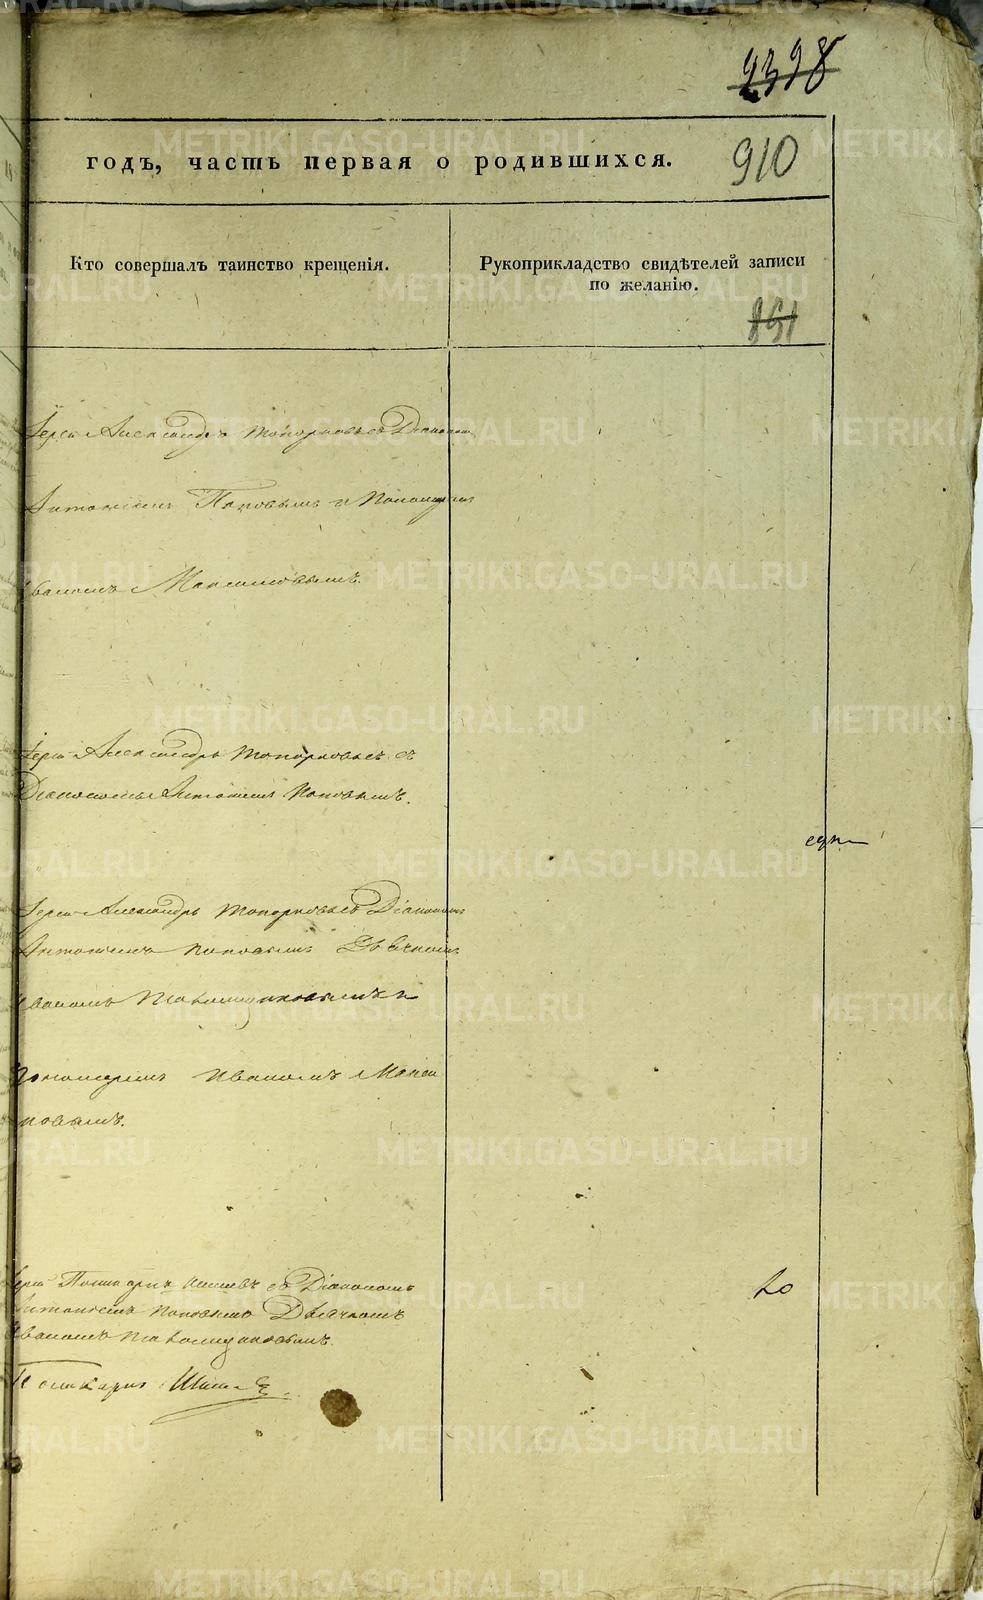 2398
годъ, часть первая о родившихся.
910
Кто совершалъ таинство крещенія.
Рукоприкладство свидѣтелей записи
по желанію.
851
Іерей Александръ Топорковъ съ Діакономъ
Антоніемъ Поповымъ и Пономаремъ
Иваномъ Максимовымъ.
Іерей Александръ Топорковъ съ
Діакономъ Антоніемъ Поповымъ.
Іерей Александръ Топорковъ съ Діакономъ
Антоніемъ Поповымъ Дьячкомъ
Иваномъ и
Пономаремъ Иваномъ Макси
мовымъ.
Іерей Поликарпъ съ Діакономъ
Антоніемъ Поповымъ Дьячкомъ
Иваномъ
Поликарпъ
METRIKI.GASO-URAL.RU